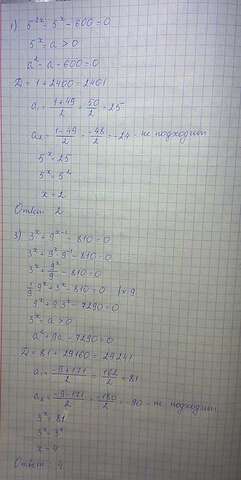 1) 5²ˣ - 5ˣ - 600 = 0
5ˣ = a > 0
a² - a - 600 = 0
D = 1 + 2400 = 2401
a₁ = (1+49)/2 = 50/2 = 25
a₂ = (1-49)/2 = -48/2 = -24 - не подходит
5ˣ = 25
5ˣ = 5²
x = 2
Ответ: 2
3) 3ˣ + 9ˣ⁻¹ - 810 = 0
3ˣ + 9ˣ·9⁻¹ - 810 = 0
3ˣ + 9ˣ/9 - 810 = 0
1/9·9ˣ + 3ˣ - 810 = 0 | × 9
9ˣ + 9·3ˣ - 7290 = 0
3ˣ = a > 0
a² + 9a - 7290 = 0
D = 81 + 29160 = 29241
a₁ = (-9+171)/2 = 162/2 = 81
a₂ = (-9-171)/2 = -180/2 = -90 - не подходит
3ˣ = 81
3ˣ = 3⁴
x = 4
Ответ: 4